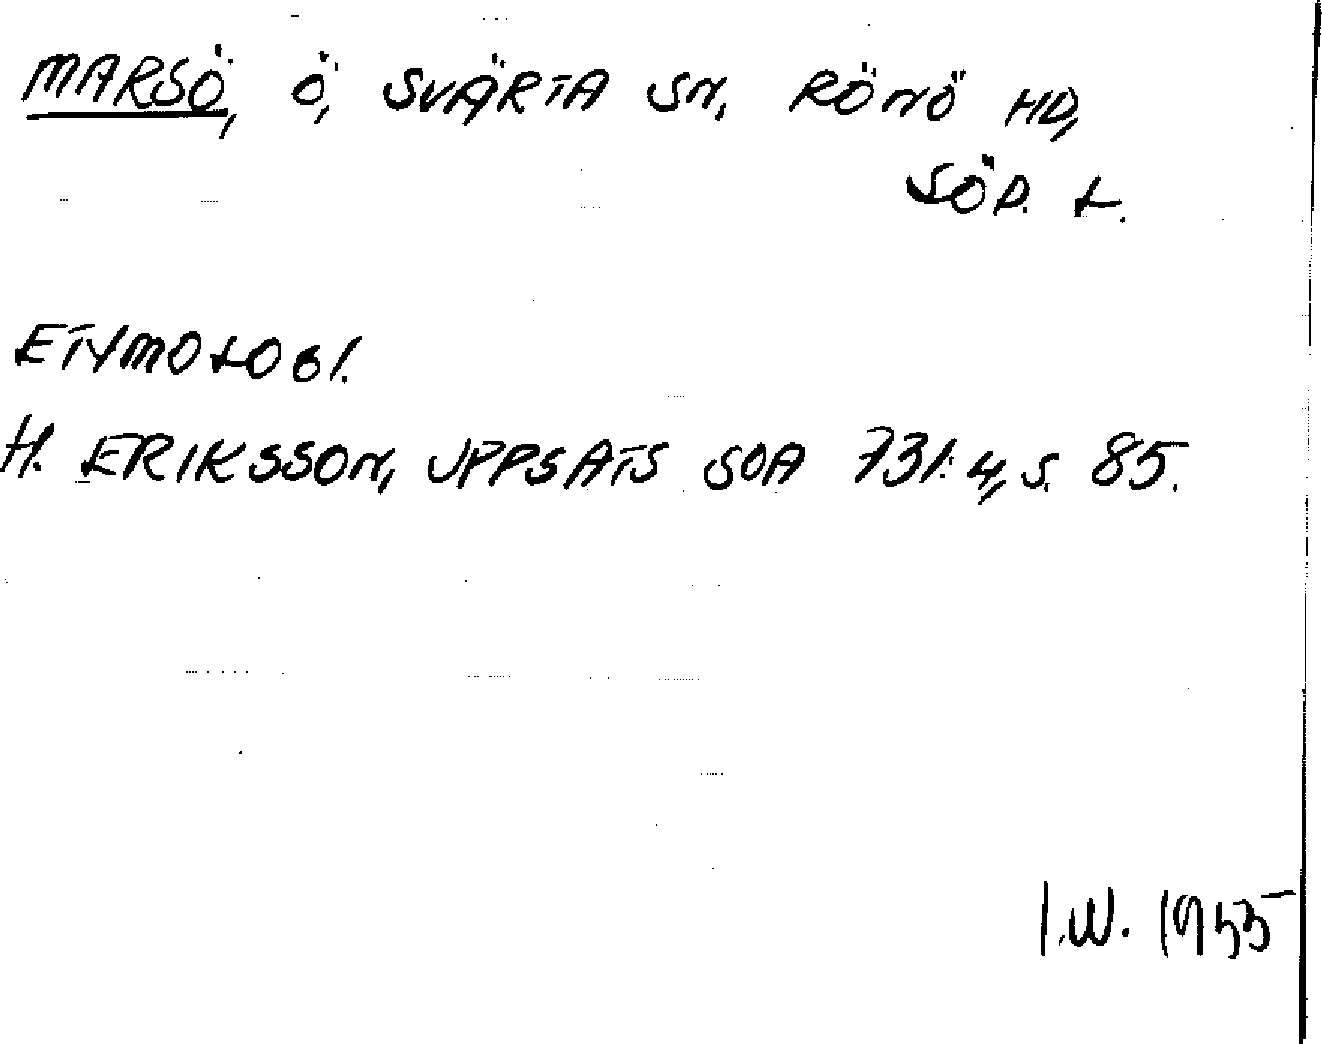 MARSÖ, Ö, SVÄRTA SN, RÖNÖ HD,
SÖD. L.
ETYMOLOGI.
H. ERIKSSON, UPPSATS SOA 731:4, S. 85.
I.W. 1955